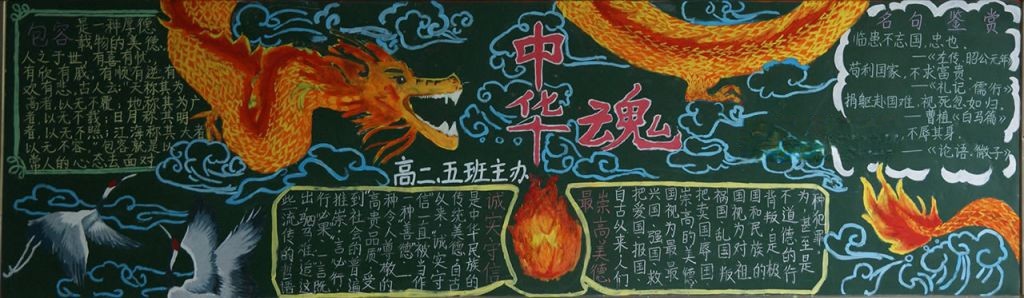 包容
是一种厚德
载物的美德。
人之于世,有喜有忧,
有欣有戚,有顺有逆,有
欢有悲。古人云:“天称其
高者,以无不覆;地称其广
者,以无不载;日月称其明
者,以无不照;江海称其大
者,以无不容。”包容就是以
常人的心态去面对
中华魂
高二、五班主办
诚实守信
是中华民族的
传统美德。自古
以来,诚实守
信一直被习作
一种善德,一
种令人尊敬的
高贵品质,受
到社会的普遍
推崇。言必行
行必果、一言既
出驷马难追这
些流传的哲语
最崇高美德
自古以来人们
把爱国、报国、
兴国、强国、救
国视为最最
崇高的美德
把卖国辱国
祸国乱国叛
国视为对祖
国和民族的
背叛,自是极
不道德的行
为,甚至是
一种犯罪
名句鉴赏
临患不忘国,忠也。
——《左传·昭公元年》
苟利国家,不求富贵。
——《礼记·儒行》
捐躯赴国难,视死忽如归。
——曹植《白马篇》
不辱其身。
——《论语·微子》